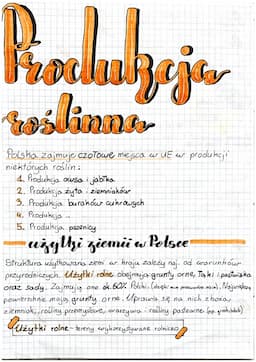 Produkcja
roślinna
Polska zajmuje czołowe miejsca w UE w produkcji
niektórych roślin:
1. Produkcja owsa i jabłka
2. Produkcja żyta i ziemniaków
3. Produkcja buraków cukrowych
4. Produkcja
5. Produkcja pszenicy
użytki ziemi w Polsce
Struktura użytkowania ziemi w kraju zależy m.in. od warunków
przyrodniczych. Użytki rolne obejmują grunty orne, łąki i pastwiska
oraz sady. Zajmują one ok. 60% Polski. Największą
powierzchnię mają grunty orne. Uprawia się na nich zboża,
ziemniaki, rośliny przemysłowe, warzywa i rośliny pastewne
Użytki rolne - tereny wykorzystywane rolniczo